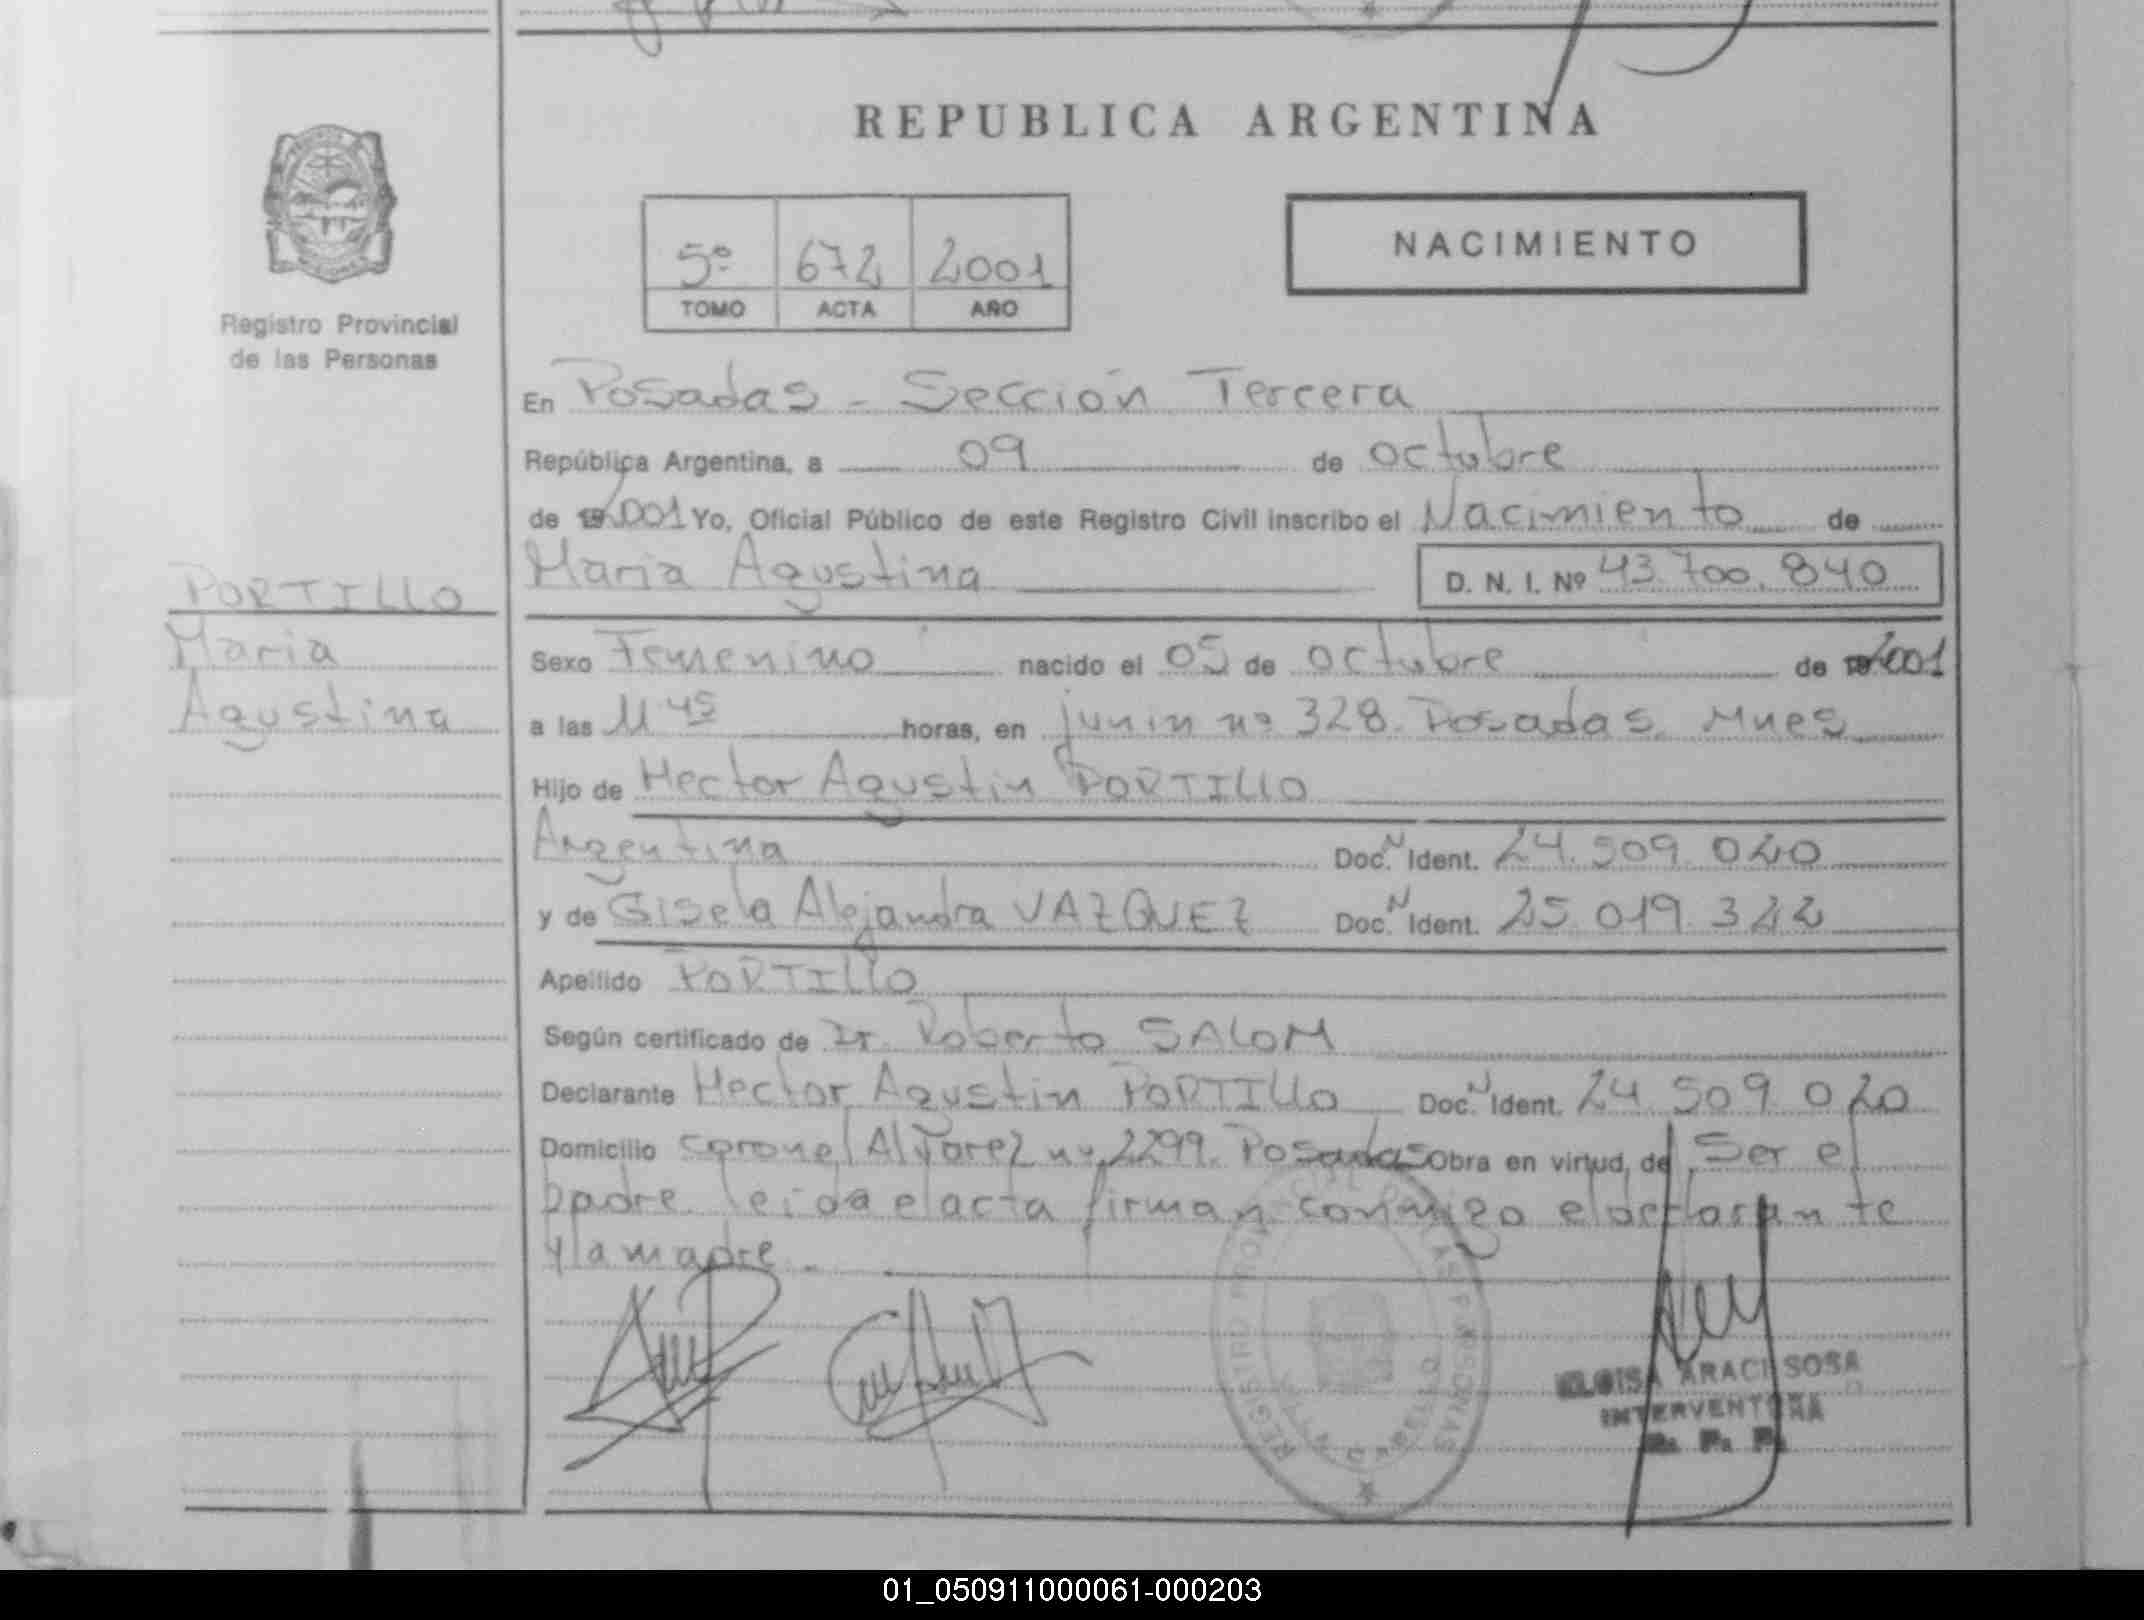 REPUBLICA ARGENTINA
5º 672 2001
TOMO ACTA AÑO
NACIMIENTO
Registro Provincial
de las Personas
En Posadas - Sección Tercera
República Argentina, a 09 de octubre
de 2001 Yo, Oficial Público de este Registro Civil inscribo el Nacimiento de
Maria Agustina D. N. I. Nº 43.700.840
PORTILLO
Maria
Agustina
Sexo Femenino nacido el 05 de octubre de 2001
a las 11 45 horas, en junin nº 328. Posadas. Mnes
Hijo de Hector Agustin PORTILLO
Argentina Doc. N Ident. 24.509.020
y de Gisela Alejandra VAZQUEZ Doc. N Ident. 25.019.322
Apellido PORTILLO
Según certificado de Dr. Roberto SALOM
Declarante Hector Agustin PORTILLO Doc. N Ident. 24.509.020
Domicilio coronel Alvarez nº 2299. Posadas Obra en virtud, de Ser el
padre. leida el acta firman conmigo el declarante
y la madre.
REGISTRO PROVINCIAL DE LAS PERSONAS
ARACI SOSA
INTERVENTORA
R. P. P.
01_050911000061-000203